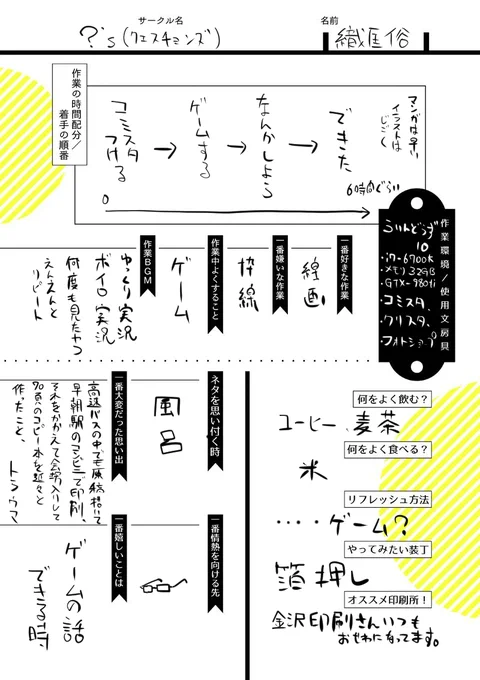 サークル名
?'s(クエスチョンズ)
名前
織匡俗
作業の時間配分/
着手の順番
コミスタ
つける
→
ゲームする
→
なんかしよう
→
できた
マンガは早い
イラストは
じごく
0
6時間ぐらい
作業環境/使用文房具
うぃんどうず
10
・i7-6700K
・メモリ32GB
・GTX-980ti
・コミスタ、
・クリスタ、
・フォトショップ
一番好きな作業
線画
一番嫌いな作業
枠線
作業中よくすること
ゲーム
作業BGM
ゆっくり実況
ボイロ実況
何度も見たやつ
えんえんと
リピート
ネタを思い付く時
風呂
一番大変だった思い出
高速バスの中でも原稿描いて
早朝駅のコンビニで印刷、
それをかかえて会場入りして
90部のコピー本を延々と
作ったこと、
トラウマ
一番情熱を向ける先
一番嬉しいことは
ゲームの話
できる時
何をよく飲む?
コーヒー、麦茶
何をよく食べる?
米
リフレッシュ方法
‥‥ゲーム?
やってみたい装丁
箔押し
オススメ印刷所!
金沢印刷さんいつも
おせわになってます。